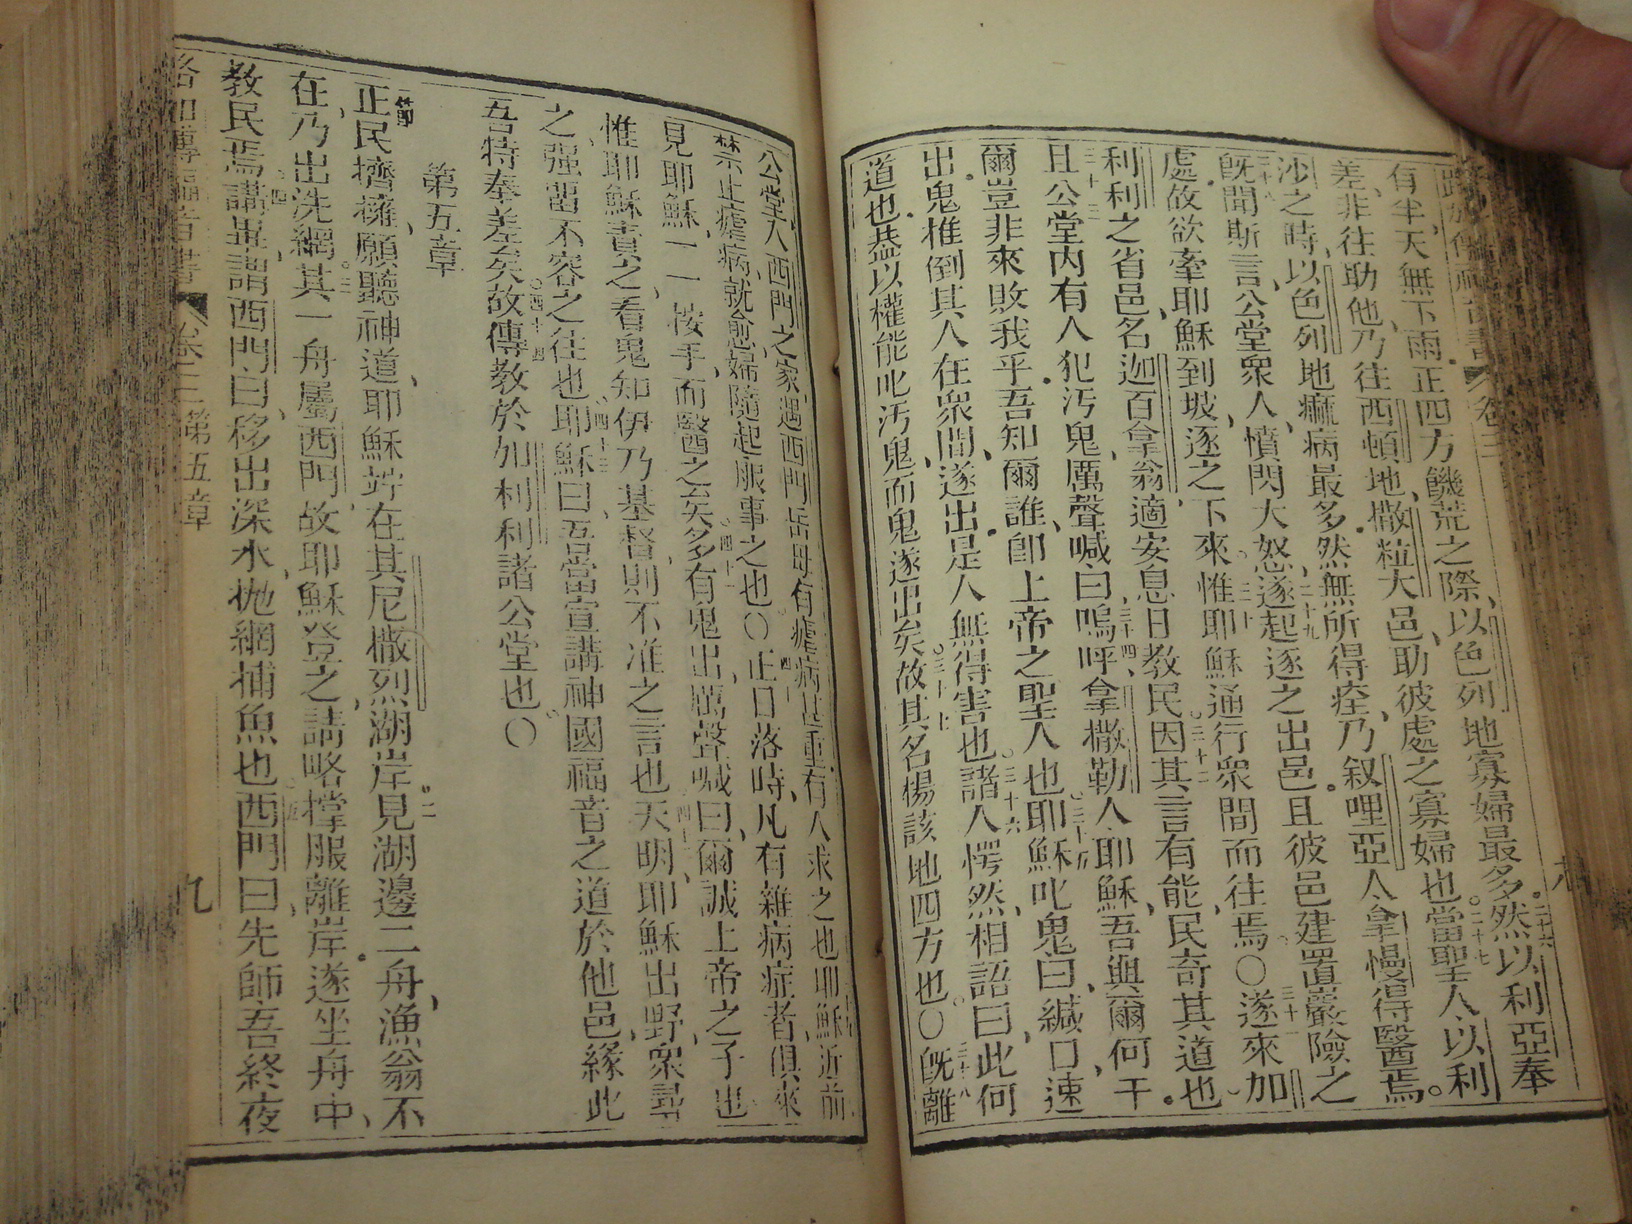 有半天無下雨正四方饑荒之際以色列地寡婦最多二十六然以利亞奉
差非往助他乃往西頓地撒粒大邑助彼處之寡婦也二十七當聖人以利
沙之時以色列地痲病最多然無所得痊乃叙哩亞人拿慢得醫焉
二十八既聞斯言公堂衆人憤悶大怒二十九遂起逐之出邑且彼邑建置嚴險之
處故欲牽耶穌到坡逐之下來三十惟耶穌通行衆間而往焉〇三十一遂來加
利利之省邑名迦百拿翁適安息日教民三十二因其言有能民奇其道也
三十三且公堂內有人犯汚鬼厲聲喊曰三十四嗚呼拿撒勒人耶穌吾與爾何干
爾豈非來敗我乎吾知爾誰卽上帝之聖人也三十五耶穌叱鬼曰緘口速
出鬼推倒其人在衆間遂出是人無得害也三十六諸人愕然相語曰此何
道也葢以權能叱汚鬼而鬼遂出矣三十七故其名楊該地四方也〇三十八旣離
公堂入西門之家遇西門岳母有瘧病甚重有人求之也耶穌近前
禁止瘧病就愈婦隨起服事之也〇四十正日落時凡有雜病症者俱來
見耶穌一一按手而醫之矣四十一多有鬼出厲聲喊曰爾誠上帝之子也
惟耶穌責之看鬼知伊乃基督則不准之言也四十二天明耶穌出野衆尋
之强留不容之往也四十三耶穌曰吾當宣講神國福音之道於他邑緣此
吾特奉差矣四十四故傳教於加利利諸公堂也〇
第五章
節正民擠擁願聽神道耶穌竚在其尼撒烈湖岸二見湖邊二舟漁翁不
在乃出洗網三其一舟屬西門故耶穌登之請略撑服離岸遂坐舟中
教民焉四講畢謂西門曰移出深水拋網捕魚也五西門曰先師吾終夜
路加傳福音書 卷三第五章 九